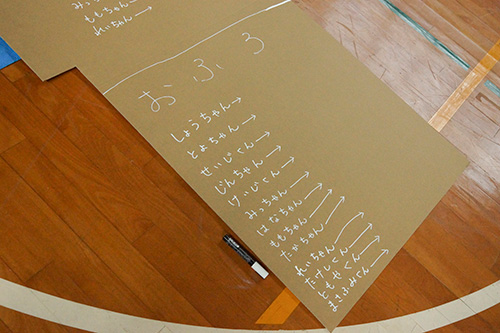 ももちゃん→
れいちゃん→
おふろ
しょうちゃん→
とよちゃん→
せいじくん→
じんちゃん→
けいじくん→
みっちゃん→
はなちゃん→
ももちゃん→
たかちゃん→
れいちゃん→
たけしくん→
ともやくん→
まさふみくん→